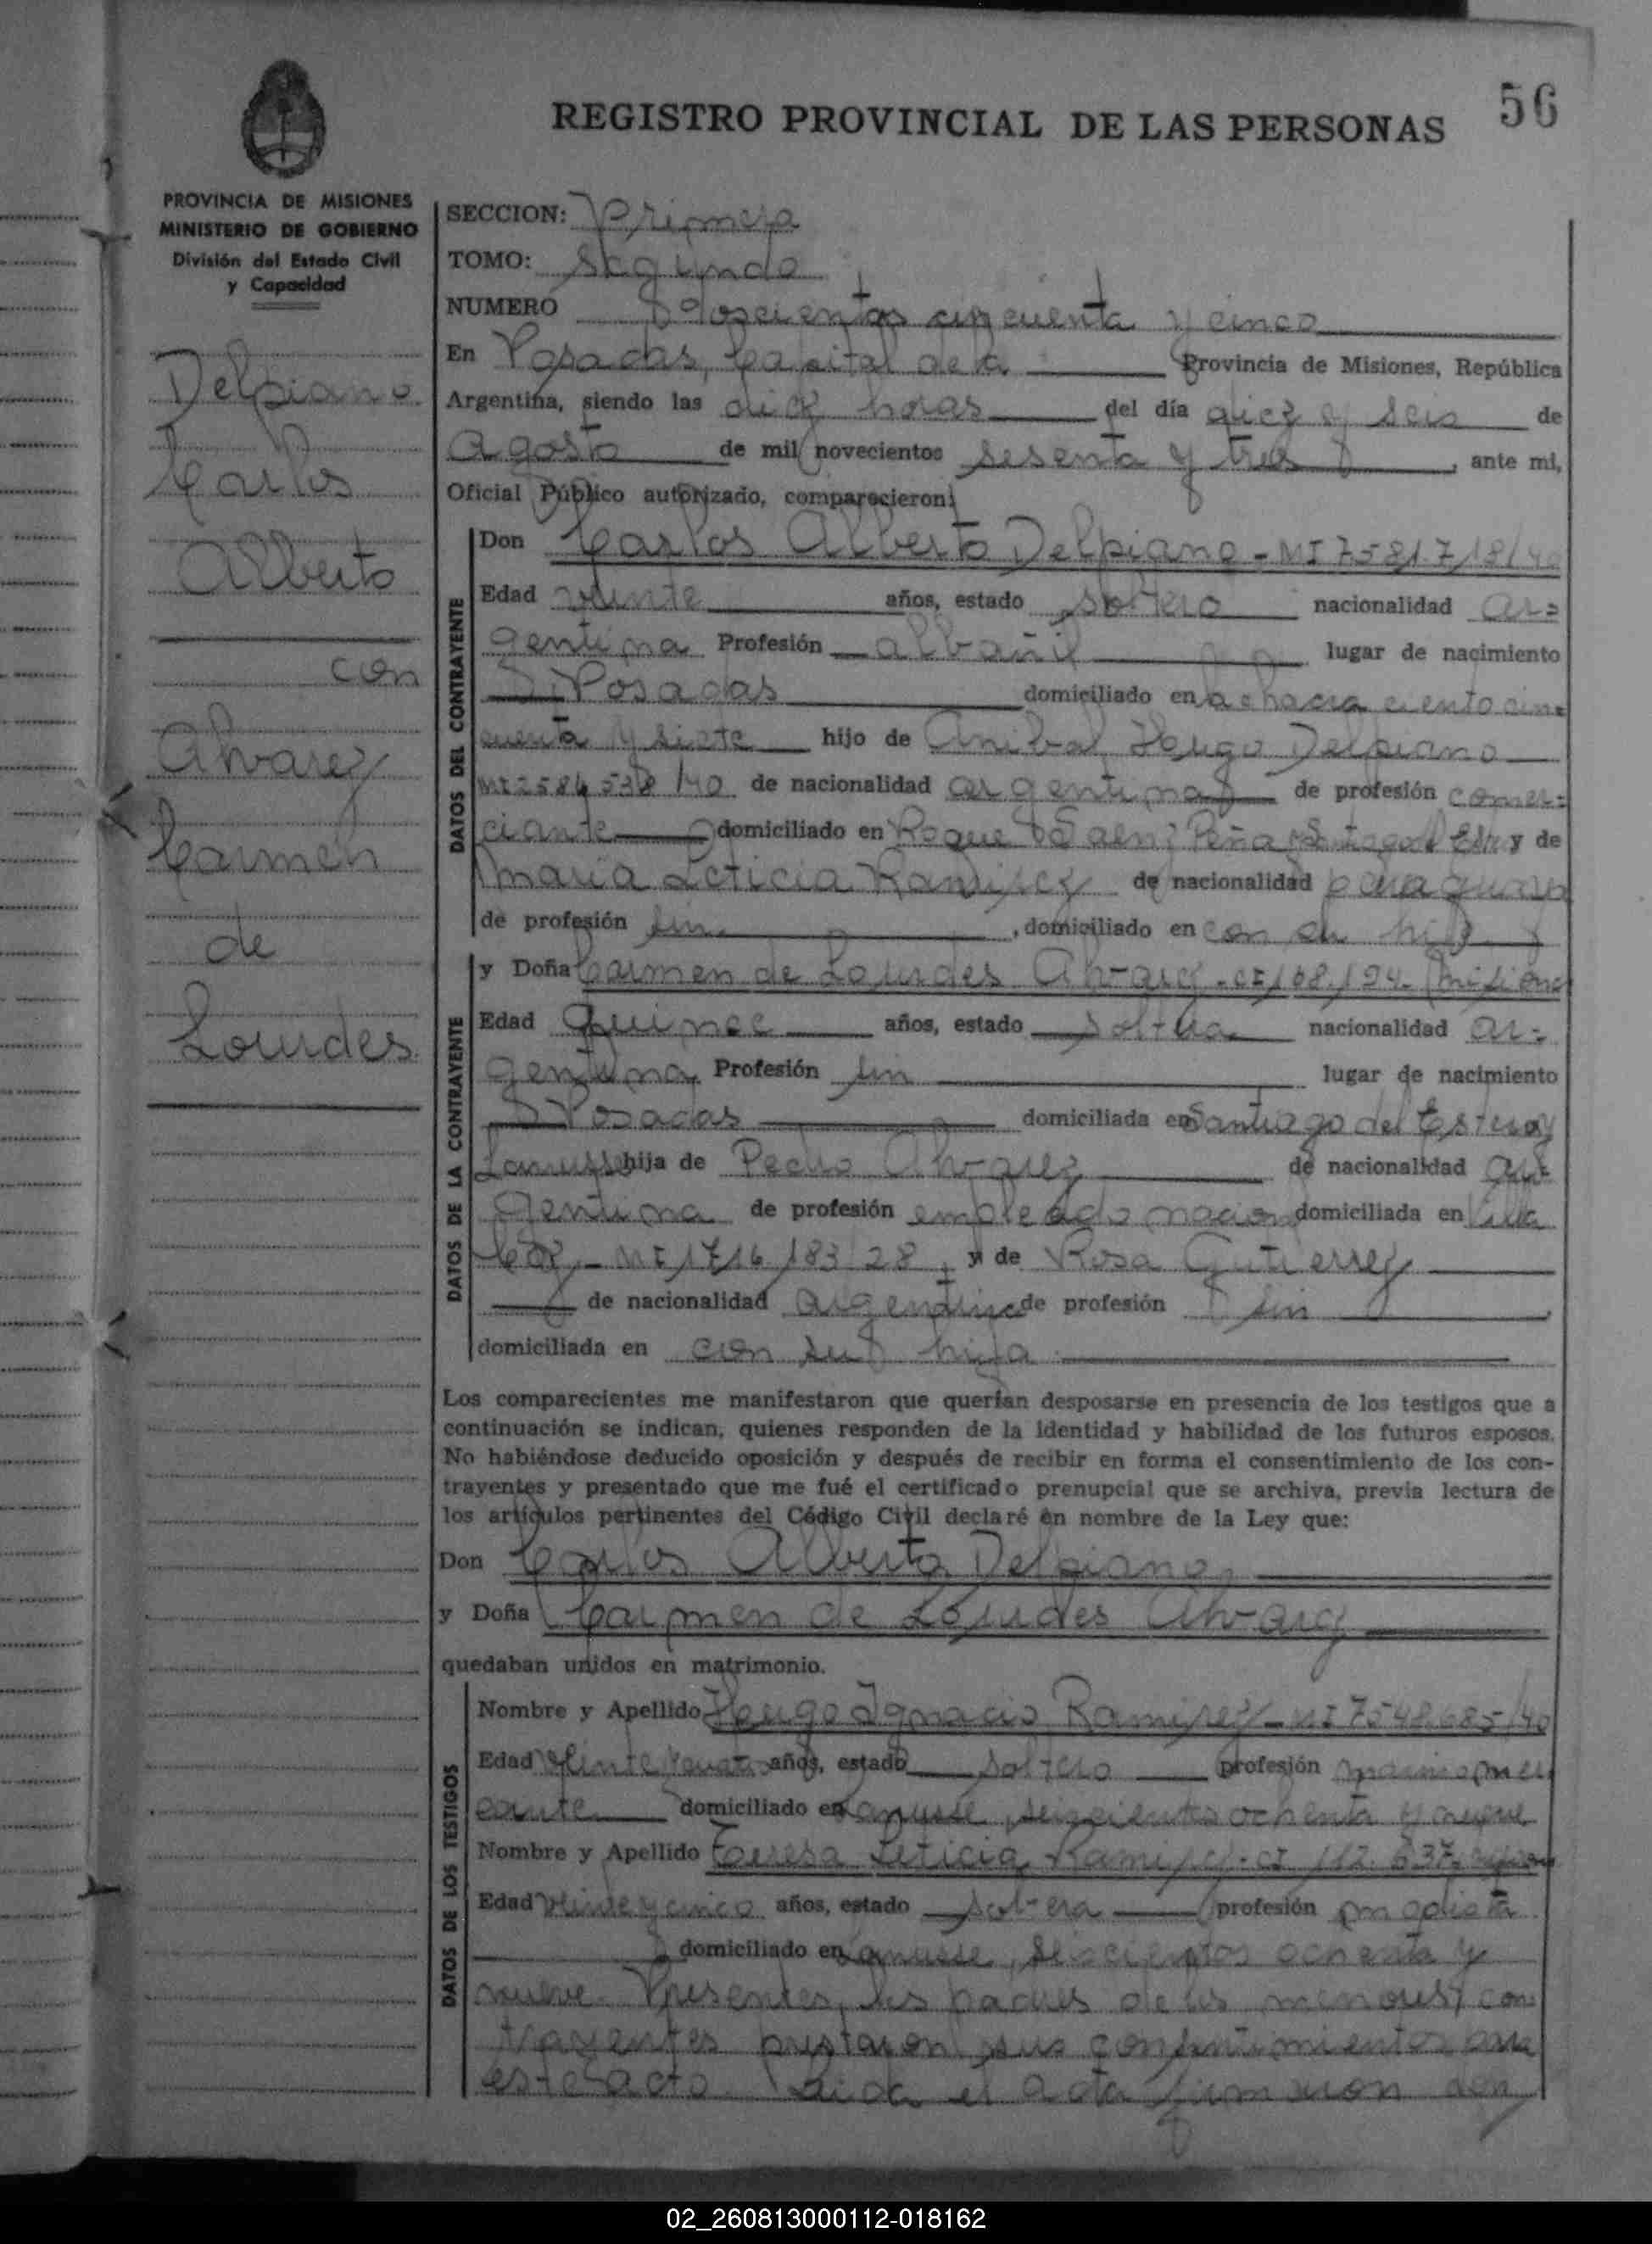 56
REGISTRO PROVINCIAL DE LAS PERSONAS
PROVINCIA DE MISIONES
MINISTERIO DE GOBIERNO
División del Estado Civil
y Capacidad
Delpiano
Carlos
Alberto
con
Alvarez
Carmen
de
Lourdes
SECCION: Primera
TOMO: Segundo
NUMERO Doscientos cincuenta y cinco
En Posadas, Capital de la Provincia de Misiones, República
Argentina, siendo las diez horas del día diez y seis de
Agosto de mil novecientos sesenta y tres, ante mi,
Oficial Público autorizado, comparecieron:
DATOS DEL CONTRAYENTE
Don Carlos Alberto Delpiano - MI 7581.718/40
Edad veinte años, estado soltero nacionalidad ar=
gentina Profesión albañil lugar de nacimiento
Posadas domiciliado en la chacra ciento cin=
cuenta y siete hijo de Anibal Hugo Delpiano
MI 2584538/40 de nacionalidad argentina de profesión comer=
ciante domiciliado en Roque Saenz Peña y y de
Maria Leticia Ramirez de nacionalidad paraguaya
de profesión sin, domiciliado en con su hijo
DATOS DE LA CONTRAYENTE
y Doña Carmen de Lourdes Alvarez - CI 108.194. Misiones
Edad Quince años, estado soltera nacionalidad ar=
gentina Profesión sin lugar de nacimiento
Posadas domiciliada en Santiago del Estero y
Lanusse hija de Pedro Alvarez de nacionalidad ar=
gentina de profesión empleado nacion domiciliada en Villa
MI 1716183 28, y de Rosa Gutierrez
de nacionalidad argentina de profesión sin
domiciliada en con su hija
Los comparecientes me manifestaron que querían desposarse en presencia de los testigos que a
continuación se indican, quienes responden de la identidad y habilidad de los futuros esposos.
No habiéndose deducido oposición y después de recibir en forma el consentimiento de los con-
trayentes y presentado que me fué el certificado prenupcial que se archiva, previa lectura de
los artículos pertinentes del Código Civil declaré en nombre de la Ley que:
Don Carlos Alberto Delpiano
y Doña Carmen de Lourdes Alvarez
quedaban unidos en matrimonio.
DATOS DE LOS TESTIGOS
Nombre y Apellido Hugo Ignacio Ramirez - MI 7548.685/40
Edad veinte y cuatro años, estado soltero profesión marino mer
cante domiciliado en Lanusse, seiscientos ochenta y nueve
Nombre y Apellido Teresa Leticia Ramirez - CI 112.637
Edad veinte y cinco años, estado soltera profesión modista
domiciliado en Lanusse, seiscientos ochenta y
nueve. Presentes, los padres de los menores con
trayentes prestaron sus consentimientos para
este acto. Leida el acta firmaron con
02_260813000112-018162